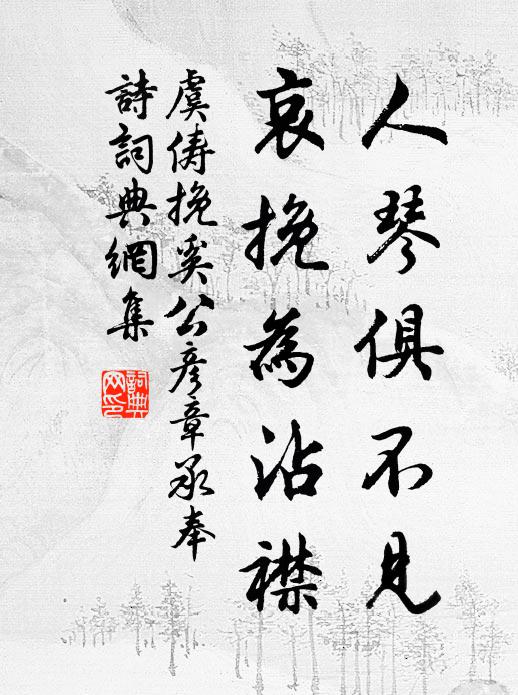 人琴俱不見
哀挽為沾襟
虞儔挽奚公彥章承奉
詩詞典網集
詞典網印